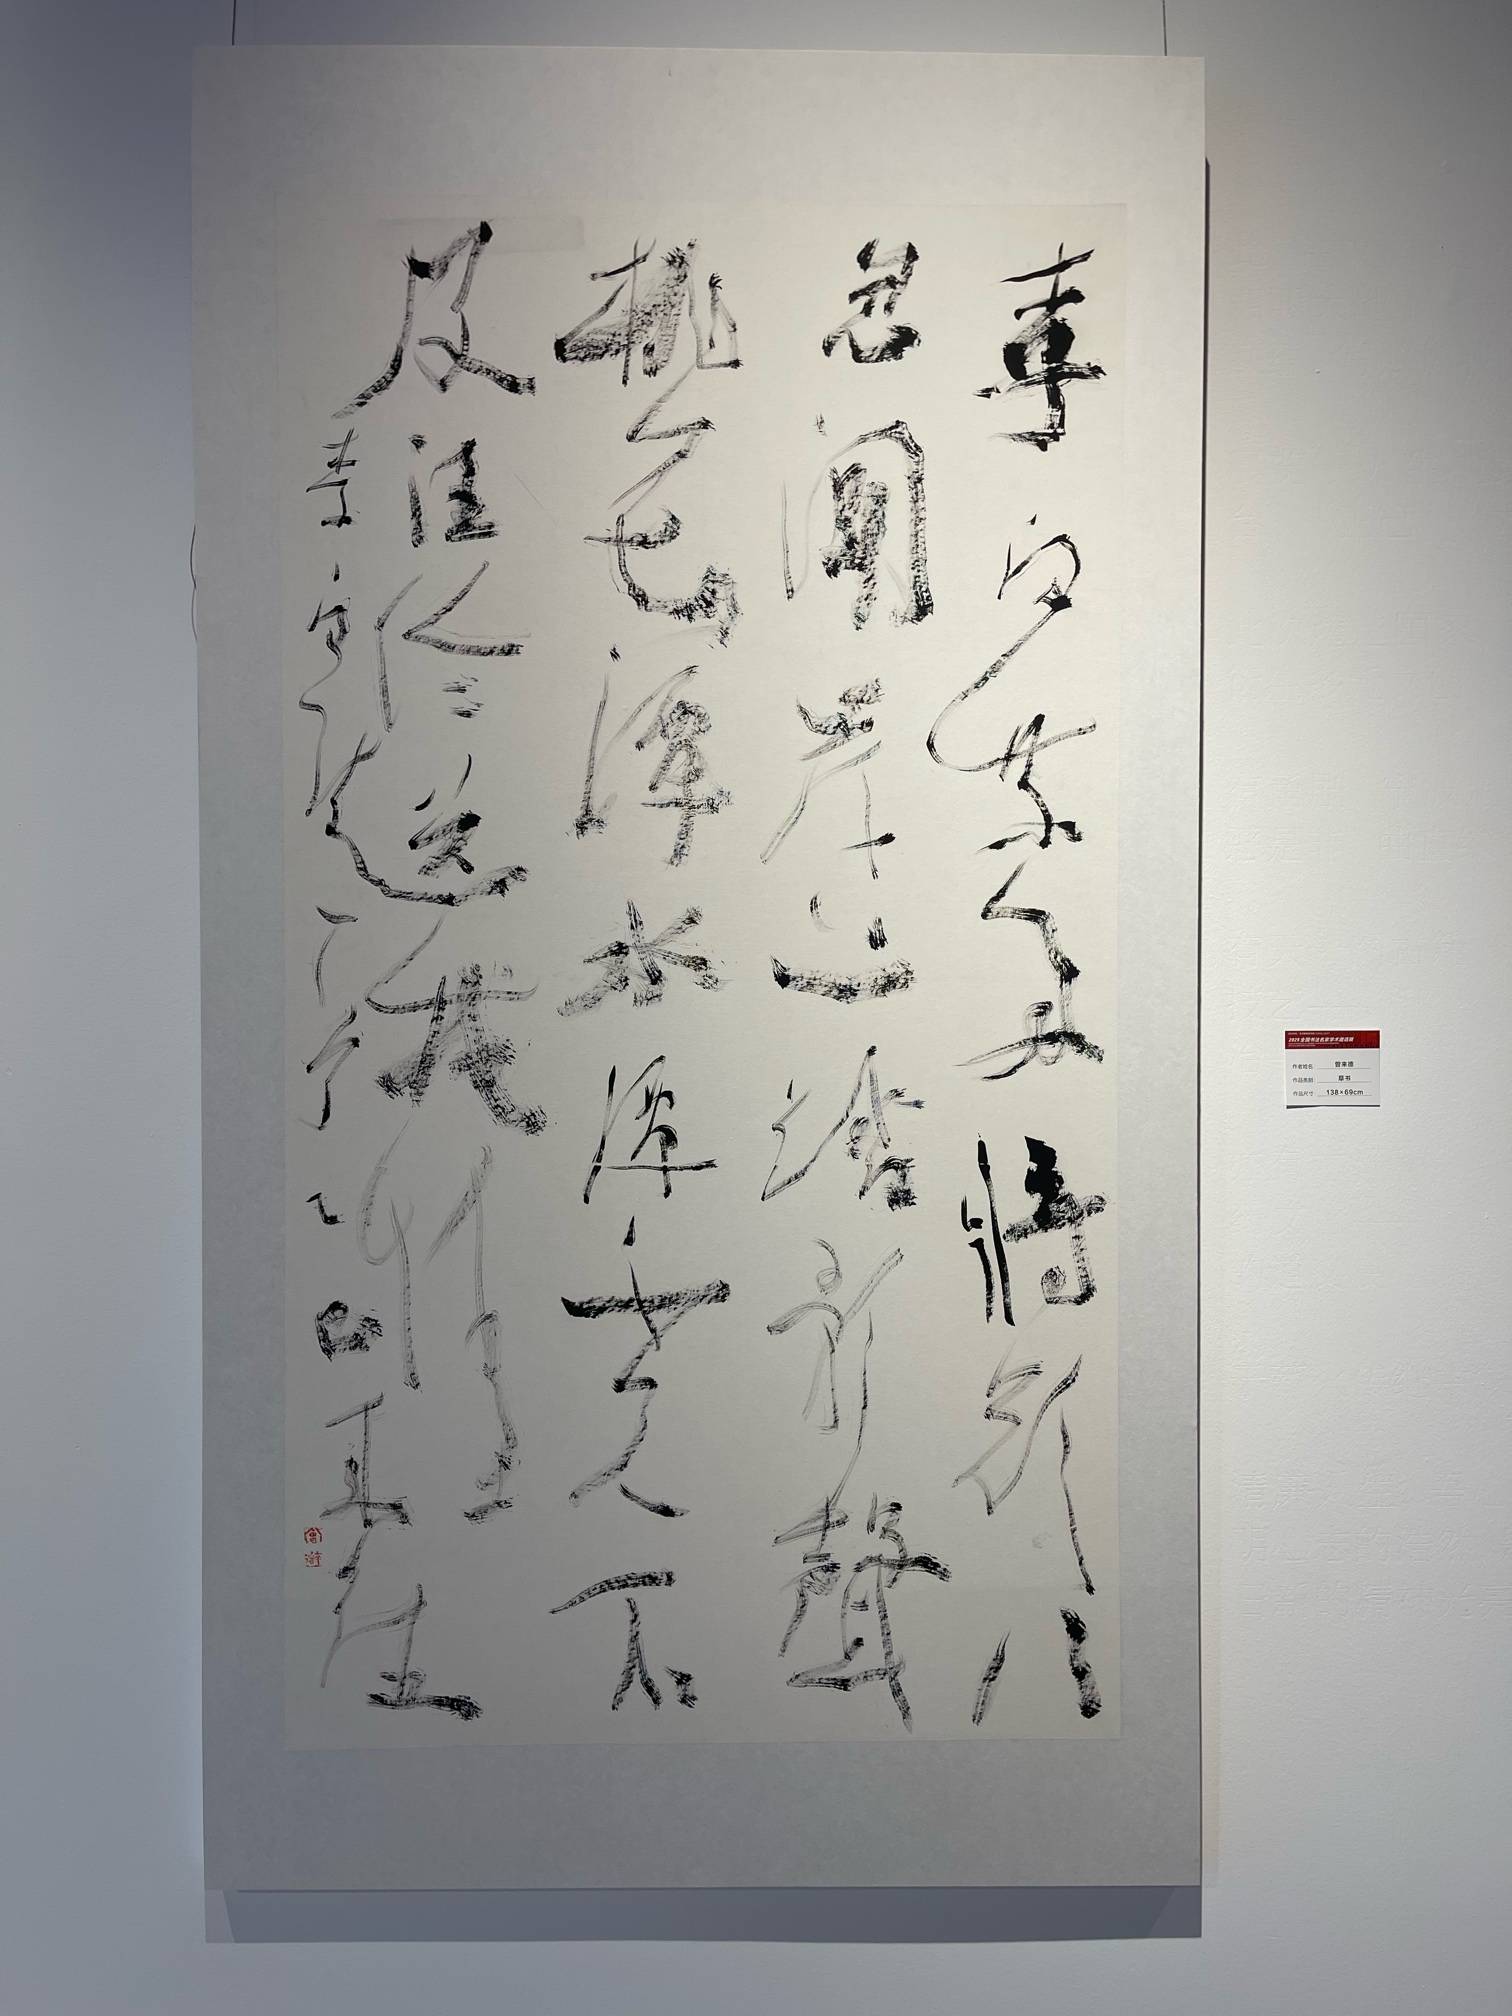 李白乘舟將欲行
忽聞岸上踏歌聲
桃花潭水深千尺不
及汪倫送我情
李白
乙巳
2025全国书法名家学术邀请展
作者姓名 曾来德
作品类别 草书
作品尺寸 138×69cm